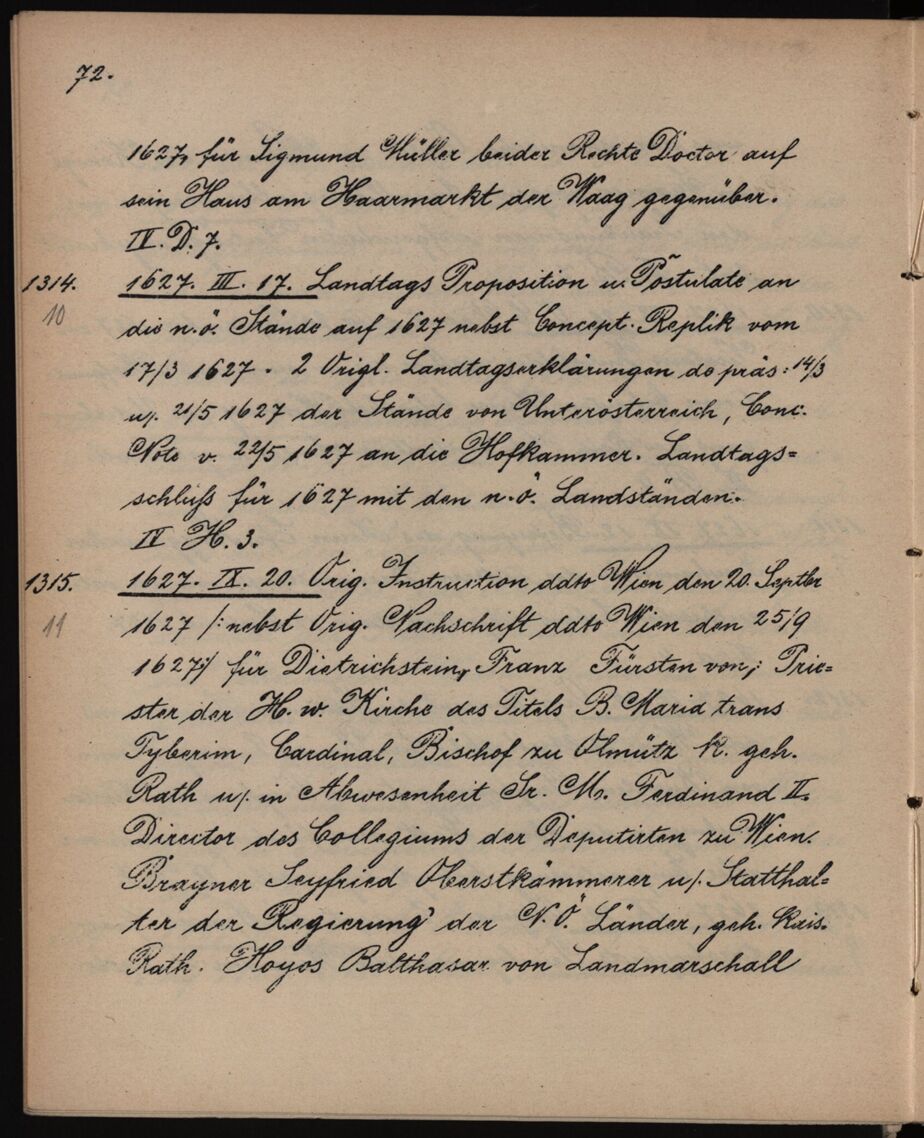 72.
1627, für Sigmund Müller beider Rechte Doctor auf
sein Haus am Haarmarkt der Waag gegenüber.
IV. D. 7.
1314. 1627. III. 17. Landtags Proposition u. Postulate an
10 die n.ö. Stände auf 1627 nebst Concept. Replik vom
17/3 1627. 2 Origl. Landtagserklärungen do präs: 14/3
u/. 21/5 1627 der Stände von Unterösterreich, Conc.
Note v. 22/5 1627 an die Hofkammer. Landtags=
schluß für 1627 mit den n.ö. Landständen.
IV H. 3.
1315. 1627. IX. 20. Orig. Instruction ddto Wien den 20. Septbr
11 1627 /: nebst Orig. Nachschrift ddto Wien den 25/9
1627:/ für Dietrichstein, Franz Fürsten von; Prie=
ster der H. w. Kirche des Titels B. Maria trans
Tyberim, Cardinal, Bischof zu Olmütz K. geh.
Rath u/. in Abwesenheit Sr. M. Ferdinand II.
Director des Collegiums der Deputirten zu Wien.
Brayner Seyfried Oberstkämmerer u/. Statthal=
ter der Regierung der N.Ö. Länder, geh. kais.
Rath. Hoyos Balthasar von Landmarschall